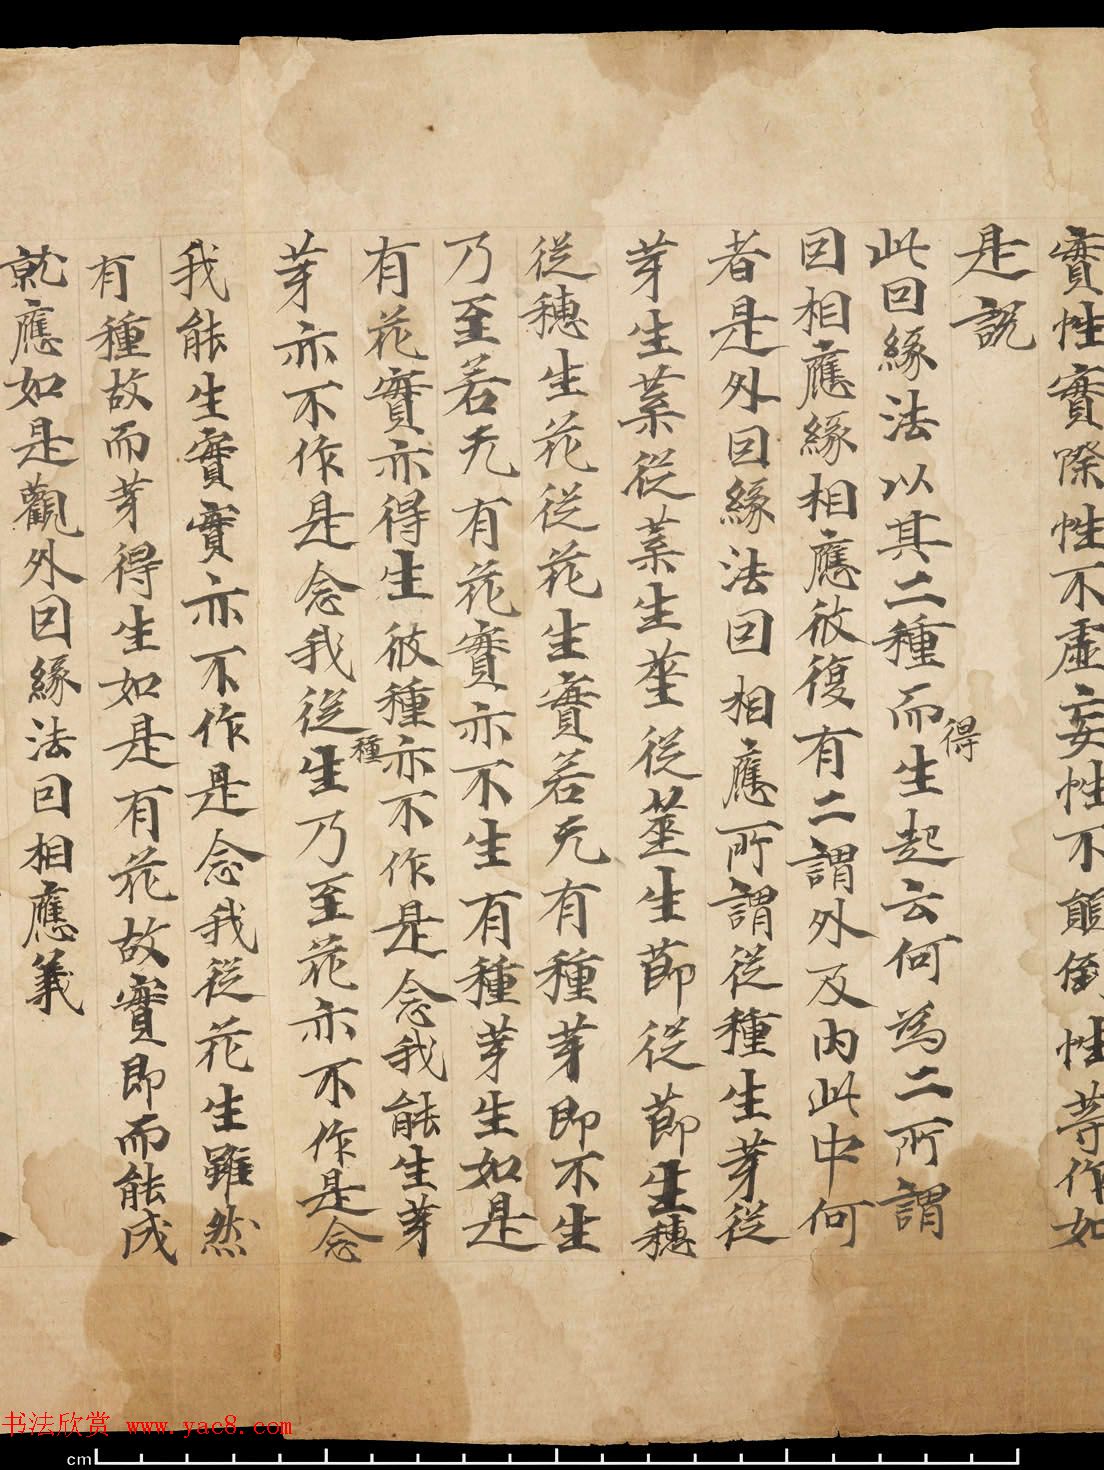 實性實際性不虛妄性不顛倒性等作如
是說
此因緣法以其二種而得生起云何為二所謂
因相應緣相應彼復有二謂外及內此中何
者是外因緣法因相應所謂從種生芽從
芽生葉從葉生莖從莖生節從節生穗
從穗生花從花生實若无有種芽即不生
乃至若无有花實亦不生有種芽生如是
有花實亦得生彼種亦不作是念我能生芽
芽亦不作是念我從種生乃至花亦不作是念
我能生實實亦不作是念我從花生雖然
有種故而芽得生如是有花故實即而能成
就應如是觀外因緣法因相應義
书法欣赏 www.yac8.com
cm